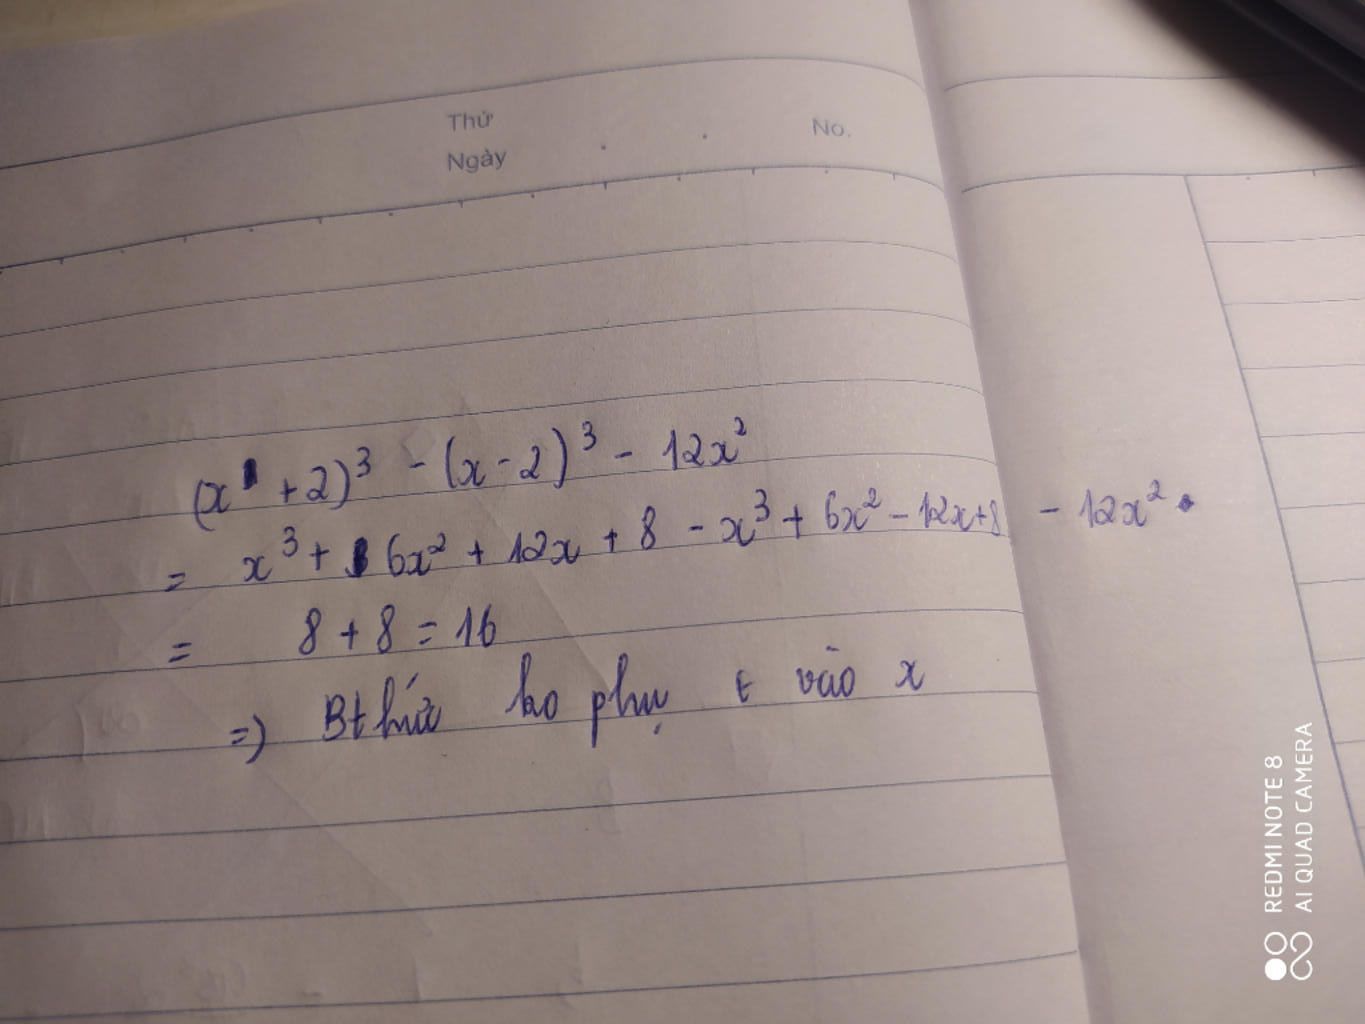 Thứ
Ngày
No.
(x + 2)³ - (x - 2)³ - 12x²
= x³ + 6x² + 12x + 8 - x³ + 6x² - 12x + 8 - 12x²
= 8 + 8 = 16
=) Bt thức ko phụ t vào x
REDMI NOTE 8
AI QUAD CAMERA